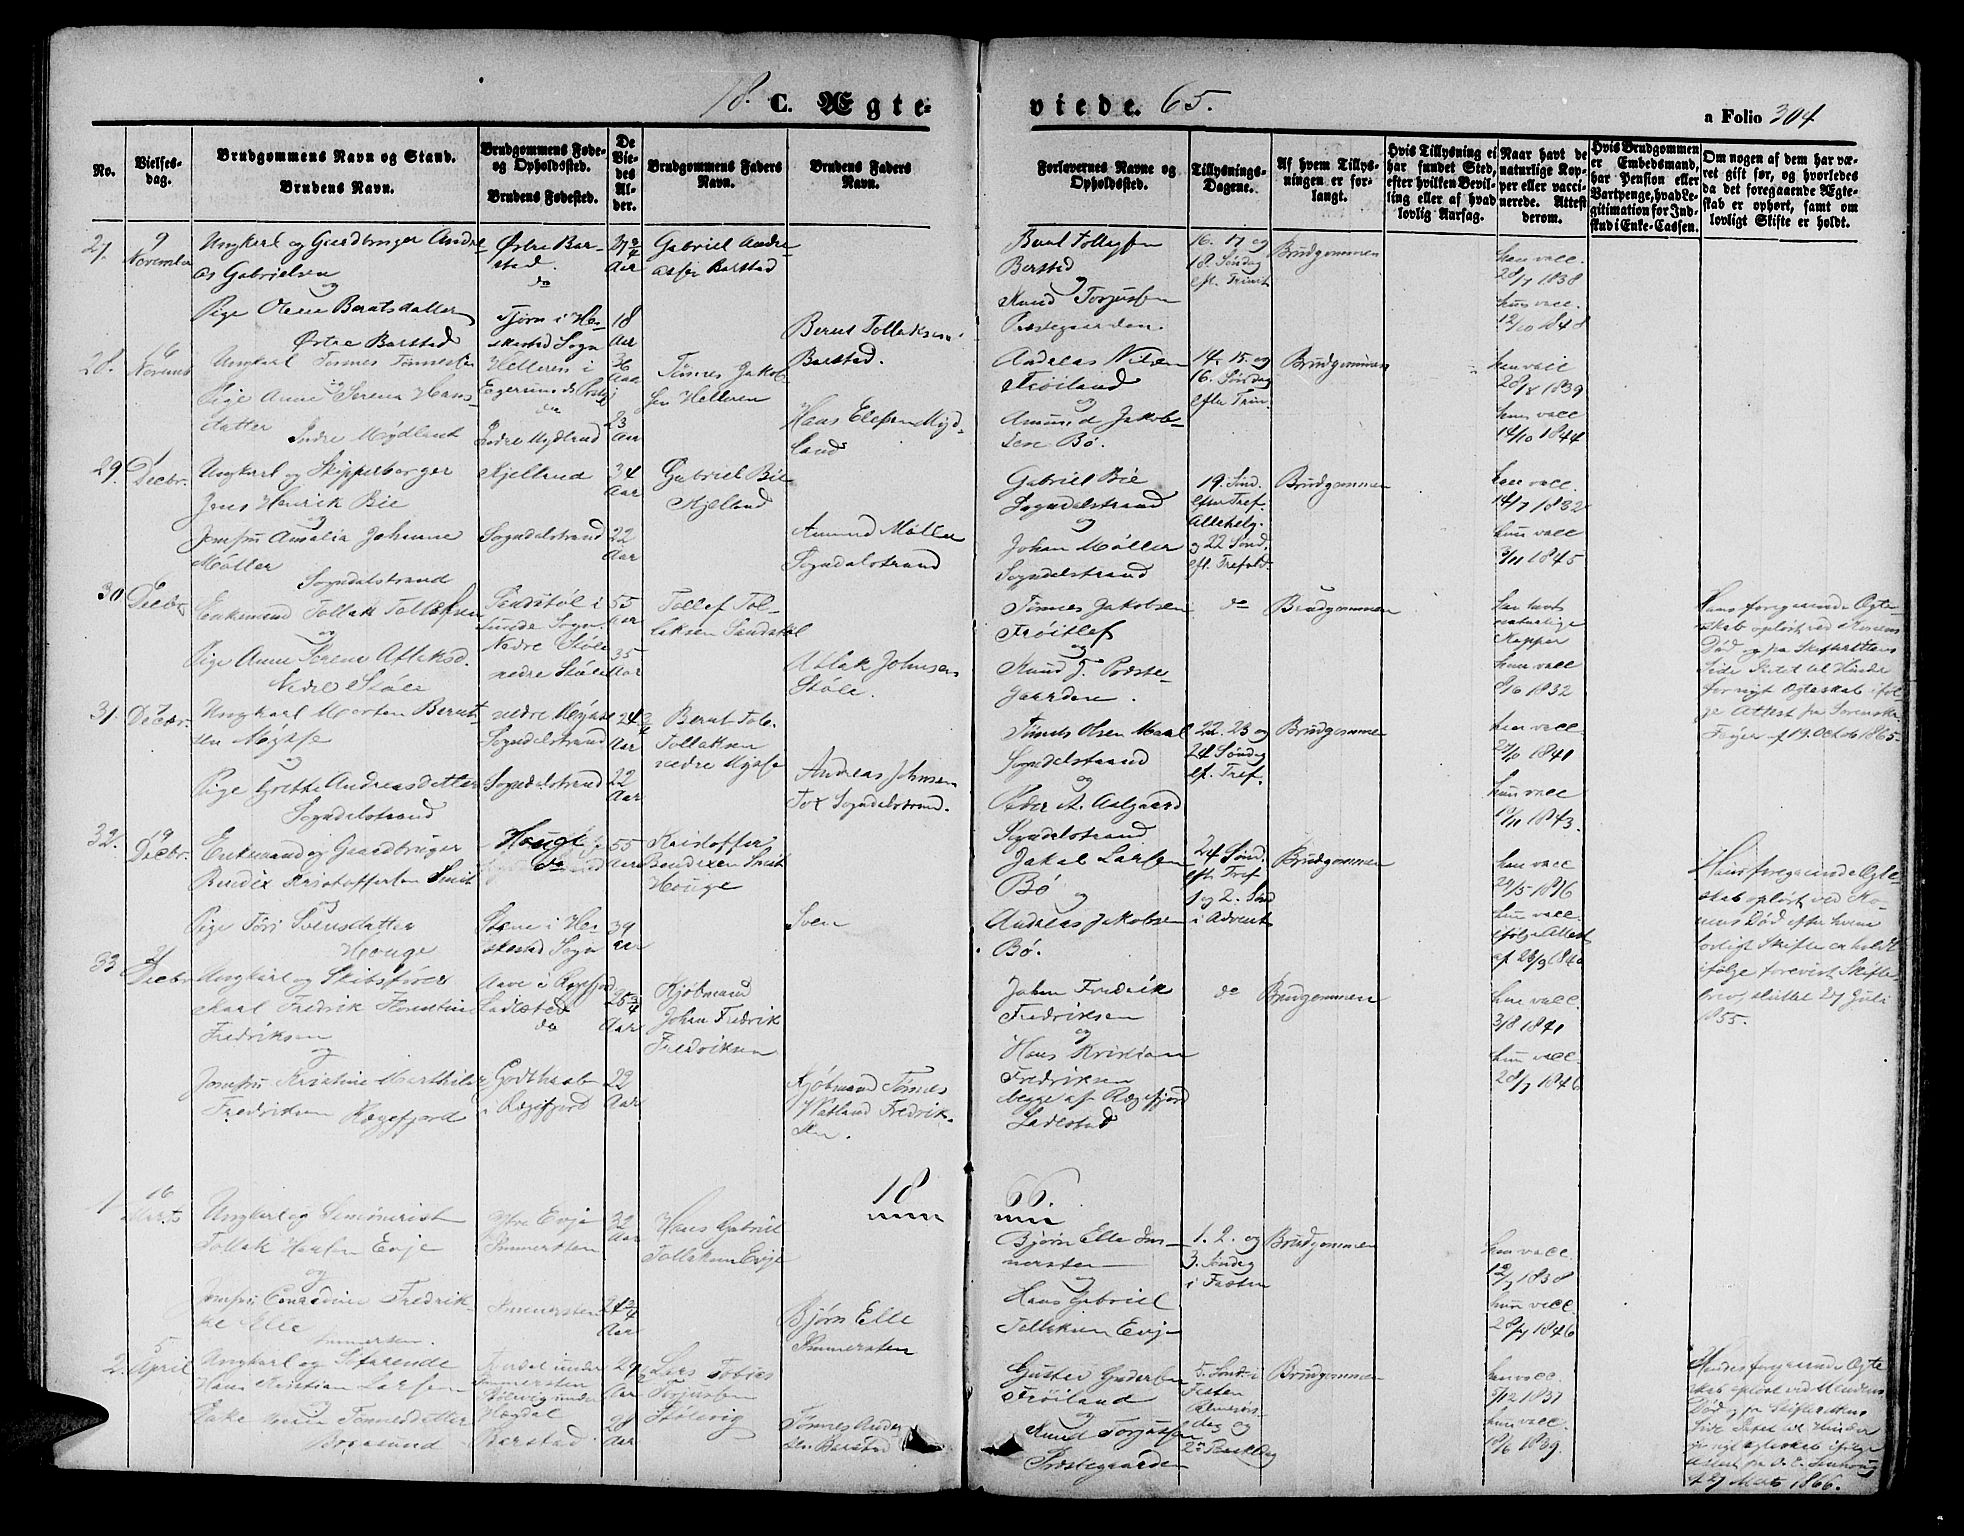 18. C. Ægte-
viede. 65.
a Folio 304
No.
Vielses-
dag.
Brudgommens Navn og Stand.
Brudens Navn.
Brudgommens Føde-
og Opholdssted.
Brudens Fødested.
De
Vie-
des
Al-
der.
Brudgommens Faders
Navn.
Brudens Faders
Navn.
Forlovernes Navne og
Opholdssted.
Tillysnings-
Dagene.
Af hvem Tillys-
ningen er for-
langt.
Hvis Tillysning ei
har fundet Sted,
efter hvilken Bevil-
ling eller af hvad
lovlig Aarsag.
Naar havt de
naturlige Kop-
per eller vacci-
nerede. Attest
derom.
Hvis Brudgommen
er Embedsmand,
har Pension eller
Vartpenge, hvad Le-
gitimation for Ind-
skud i Enke-Cassen.
Om nogen af dem har væ-
ret gift før, og hvorledes
da det foregaaende Ægte-
skab er ophørt, samt om
lovligt Skifte er holdt.
27.
9
Novemb
Ungkarl og Gardbruger Andre-
as Gabrielsen
og
Pige Olene Berntsdatter
Østre Barstad
Østre Bar-
stad.
do
Tjørn i He-
skestad Sogn
Aar
18
Aar
Gabriel Andre-
assen Barstad
Bernt Tollaksen
Barstad.
Berstad
og
Knud Torjussen
Præstegaarden.
16. 17 og
18. Søndag
eft. Trinit
Brudgommen
han vacc.
28/7 1838
hun vacc.
12/10 1848
28.
6
Novemb
Ungkarl Tønnes Tønnesen
og
Pige Anne Serena Hans-
datter
Indre Mydland
Helleren i
Egersunds Præstgj
do
Indre Mydland
36
Aar
23
Aar
Tønnes Jakob-
sen Helleren
Hans Elefsen Myd-
land
Andreas Nilsen
Frøiland
og
Amund Jakob-
sen Bø.
14. 15. og
16. Søndag
efter Trin.
Brudgommen
han vacc
28/8 1839
hun vacc
14/10 1844
29.
1
Decbr.
Ungkarl og Skipperborger
Jens Henrik Bie
og
Jomfru Amalia Johanne
Møller
Sogndalstrand
Kjelland
Sogndalstrand
34
Aar
22
Aar
Gabriel Bie
Kjelland
Amund Møller
Sogndalstrand
Gabriel Bie
Sogndalstrand
og
Johan Møller
Sogndalstrand
19. Sønd.
efter Tref.
Allehelg.
og 22 Sønd.
eft. Trefold.
Brudgommen
han vacc.
14/7 1832
hun vacc
3/11 1845
30
6
Decbr
Enkemand Tollak Tollefsen
og
Pige Anne Serene Aslaksd.
Nedre Støle
Sandstøl i
Lunde Sogn
Nedre Støle
nedre Støle
55
Aar
35
Aar
Tollef Tol-
laksen Sandstøl
Atlak Johnsen
Støle.
Tønnes Jakobsen
og
Knud T. Præste-
gaarden.
do
Brudgommen
han havt
naturlige
Kopper
hun vacc
8/6 1832
Hans foregaaende Ægte-
skab opløst ved Konens
Død og fra Skifterettens
Side Intet til Hinder
for nyt Ægteskab iføl-
ge Attest fra Sorenskr.
Feyer af 19 Octob 1865.
31.
7
Decbr.
Ungkarl Morten Bernt-
sen Mysse
og
Pige Grethe Andreasdatter
Sogndalstrand
nedre Mysse
Sogndalstrand
Sogndalstrand
24
Aar
22
Aar
Bernt Tob.
Tollaksen
nedre Mysse
Andreas Johnsen
Tox Sogndalstrand.
Tønnes Olsen Maal
Sogndalstrand
og
Peder A. Aalgaard
Sogndalstrand
22. 23 og
24 Søndag
eft. Tref.
Brudgommen
han vacc
27/10 1841
hun vacc
1843.
32.
9
Decbr.
Enkemand og Gaardbruger
Bendix Kristoffersen Smit
og
Pige Tøri Svensdatter
Houge
Hougt
do
Stene i He-
skestad Sogn
55
Aar
39
aar
Kristoffer
Bendixen Smit
Houge
Sven
Jakob Larsen
Bø
og
Andreas Jakobsen
Bø.
24 Sønd.
eft. Tref
1 og 2. Sønd
i Advent
Brudgommen
han vacc.
29/5 1816
hun vacc.
ifølge Attest
af 28/9 1840
Hans foregaaende Ægte-
skab opløst ved Ko-
nens Død efter hvem
lovligt Skifte er holdt
ifølge forevist Skifte-
brev sluttet 27 Juli
1855.
33
21
Decbr
Ungkarl og Skibsfører
Karl Fredrik Florentine
Fredriksen
og
Jomfru Kristine Marthilde
Fredriksen
Rægefjord
Aave i Rægefjord
Ladested
do
Godthaab
i Rægefjord
25 3/4
Aar
22
Aar
Kjøbmand
Johan Fredrik
Fredriksen
Kjøbmand Tønnes
Watland Fredrik-
sen.
Johan Fredrik
Fredriksen
og
Hans Kristian
Fredriksen
begge af Rægefjord
Ladestad
do
Brudgommen
han vacc.
3/8 1841
hun vacc.
28/7 1846
18
66.
1
16
Marts
Ungkarl og Seminarist
Tollak Hansen Evje
og
Jomfru Conradine Fredrik-
ke Elle
Immersten.
Øfre Evje
Immersten
Immersten
32
Aar
24 3/4
Aar
Hans Gabriel
Tollaksen Evje
Bjørn Elle
Immersten
Bjørn Elle Im-
mersten
og
Hans Gabriel
Tollaksen Evje
1. 2. og
3. Søndag
i Fasten
Brudgommen
han vacc.
12/7 1838
hun vacc.
28/7 1846
2.
5
April
Ungkarl og Søfarende
Hans Kristian Larsen
og
Tønnesdatter
Immersten
Stølevig under
Barstad
29
Aar
28
Aar
Lars Tobias
Torjussen
Stølevig
Tønnes Andr-
sen Barstad
Frøiland
og
Knud Torjussen
Præstegaarden
5. Sønd. i
Fasten
Brudgommen
han vacc.
5/12 1837
hun vacc.
1839.
Hendes foregaaende Ægte
skab opløst ved Mandens
Død og fra Skifterettens
Side Intet til Hinder
for nyt Ægteskab ifølge
27 Marts 1866.